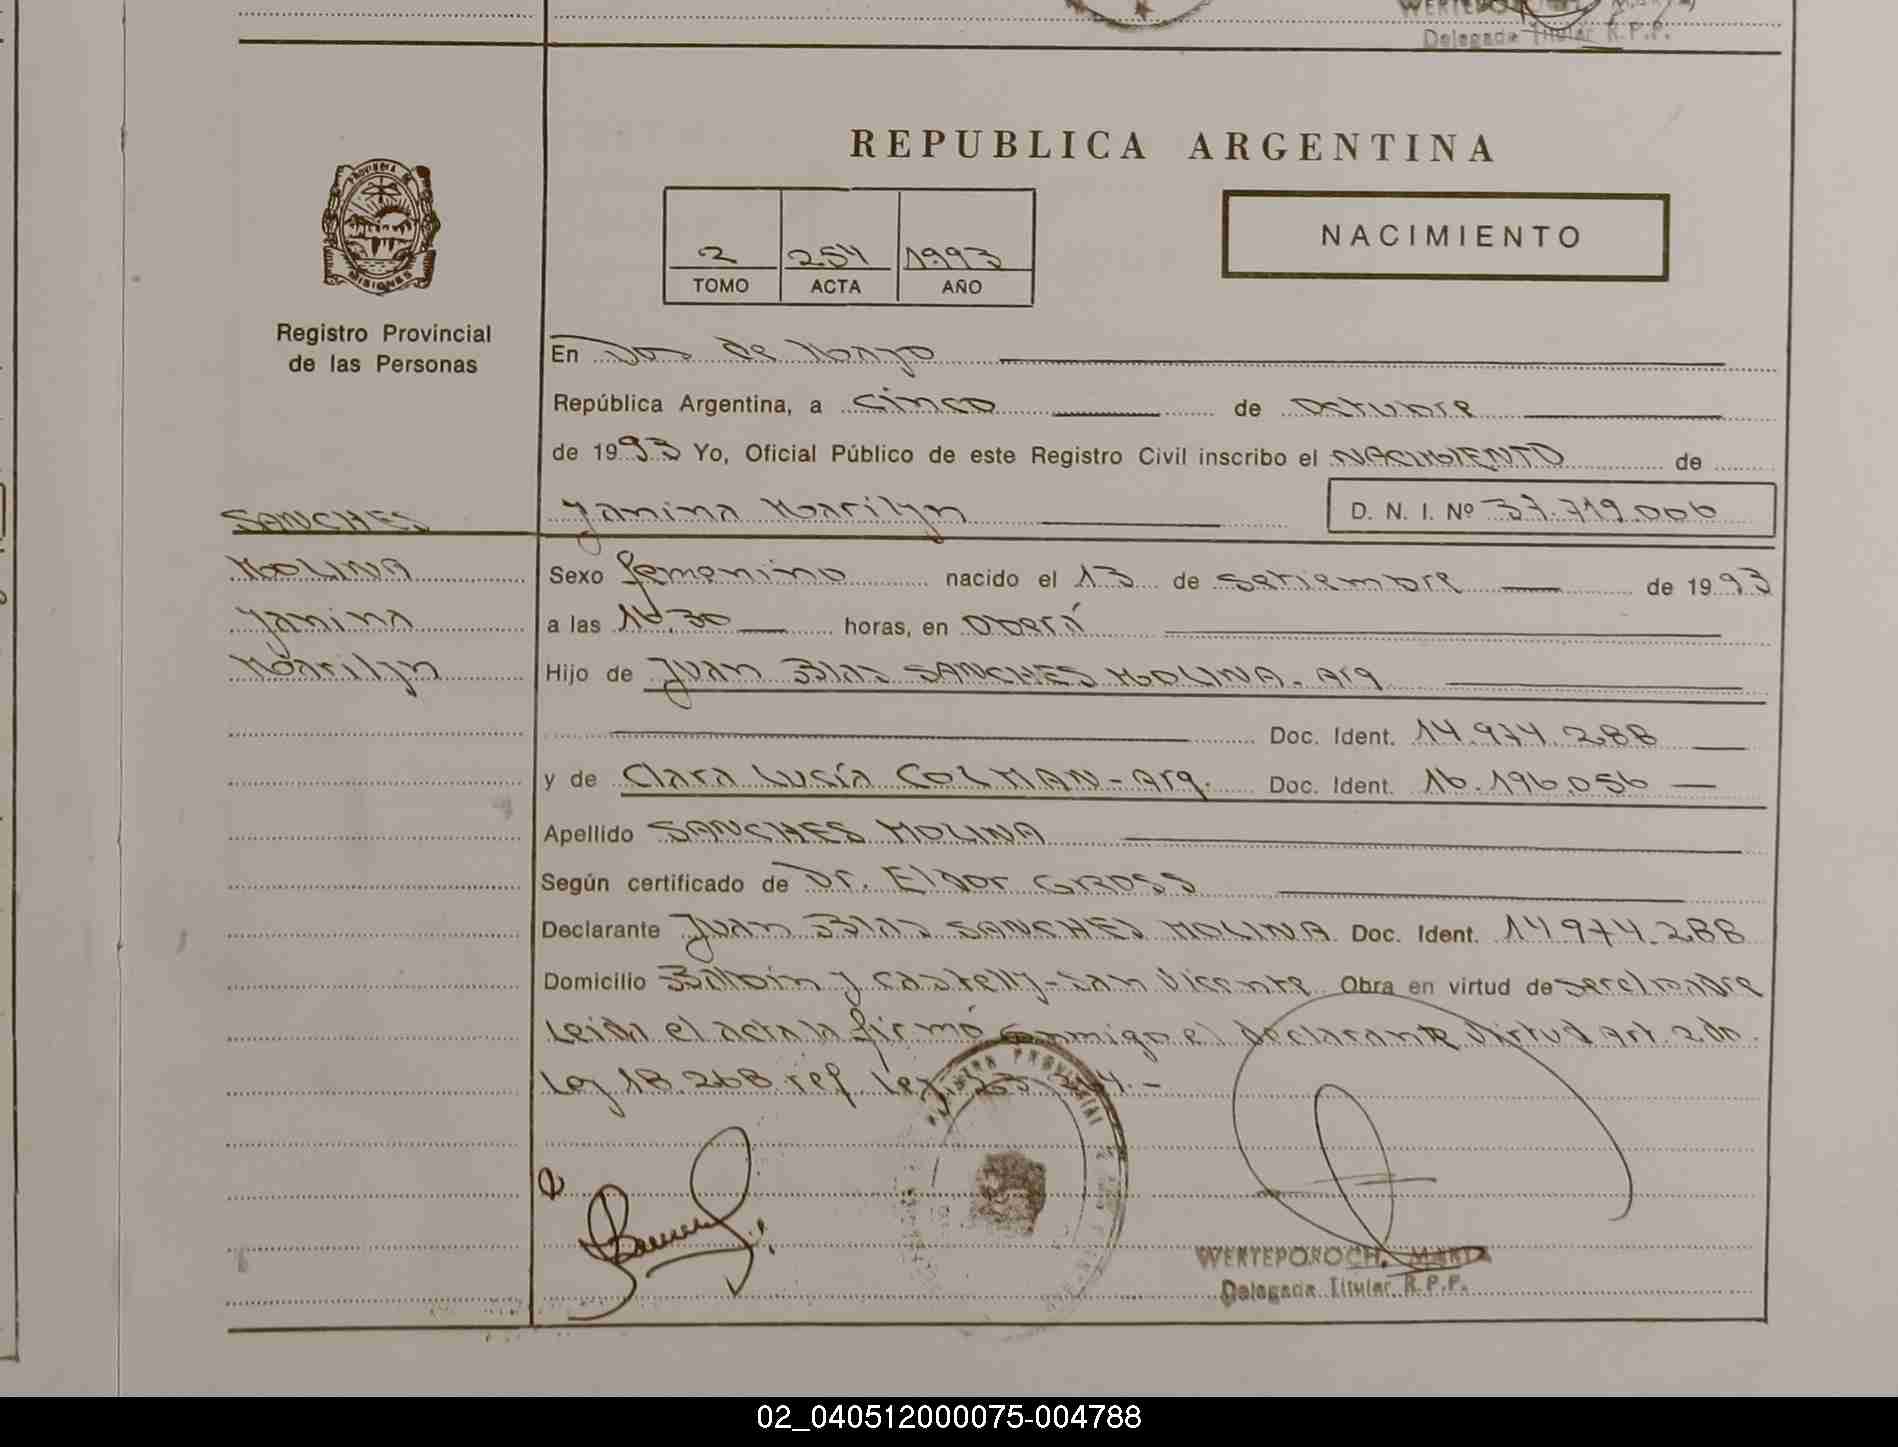 Delegada Titular R.P.P.
REPUBLICA ARGENTINA
PROVINCIA DE
MISIONES
Registro Provincial
de las Personas
2 254 1993
TOMO ACTA AÑO
NACIMIENTO
En Dos de Mayo
República Argentina, a cinco de octubre
de 1993 Yo, Oficial Público de este Registro Civil inscribo el NACIMIENTO de
Yanina Marilyn D. N. I. Nº 37.719.006
SANCHES
MOLINA
Yanina
Marilyn
Sexo femenino nacido el 13 de setiembre de 1993
a las 16.30 horas, en Oberá
Hijo de Juan Blas SANCHES MOLINA. Arg
Doc. Ident. 14.974.288
y de Clara Lucía COLMAN - Arg. Doc. Ident. 16.196.056
Apellido SANCHES MOLINA
Según certificado de Dr. Elgor GROSS
Declarante Juan Blas SANCHES MOLINA Doc. Ident. 14974.288
Domicilio y Castelly - San Vicente Obra en virtud de ser el padre
Leida el acta la firmó conmigo el declarante virtud art. 2do.
Ley 18.268 ref Ley 23.264.-
WERTEPOROCH, MARTA
Delegada Titular R.P.P.
02_040512000075-004788